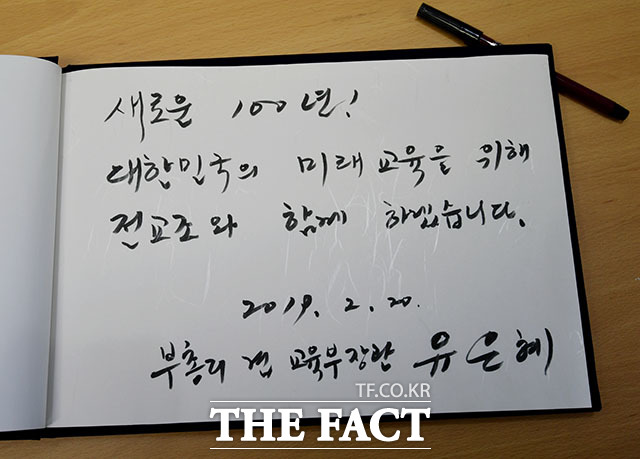 새로운 100년!
대한민국의 미래교육을 위해
전교조와 함께 하겠습니다.
2019. 2. 20.
부총리 겸 교육부장관 유은혜
TF.CO.KR
THE FACT